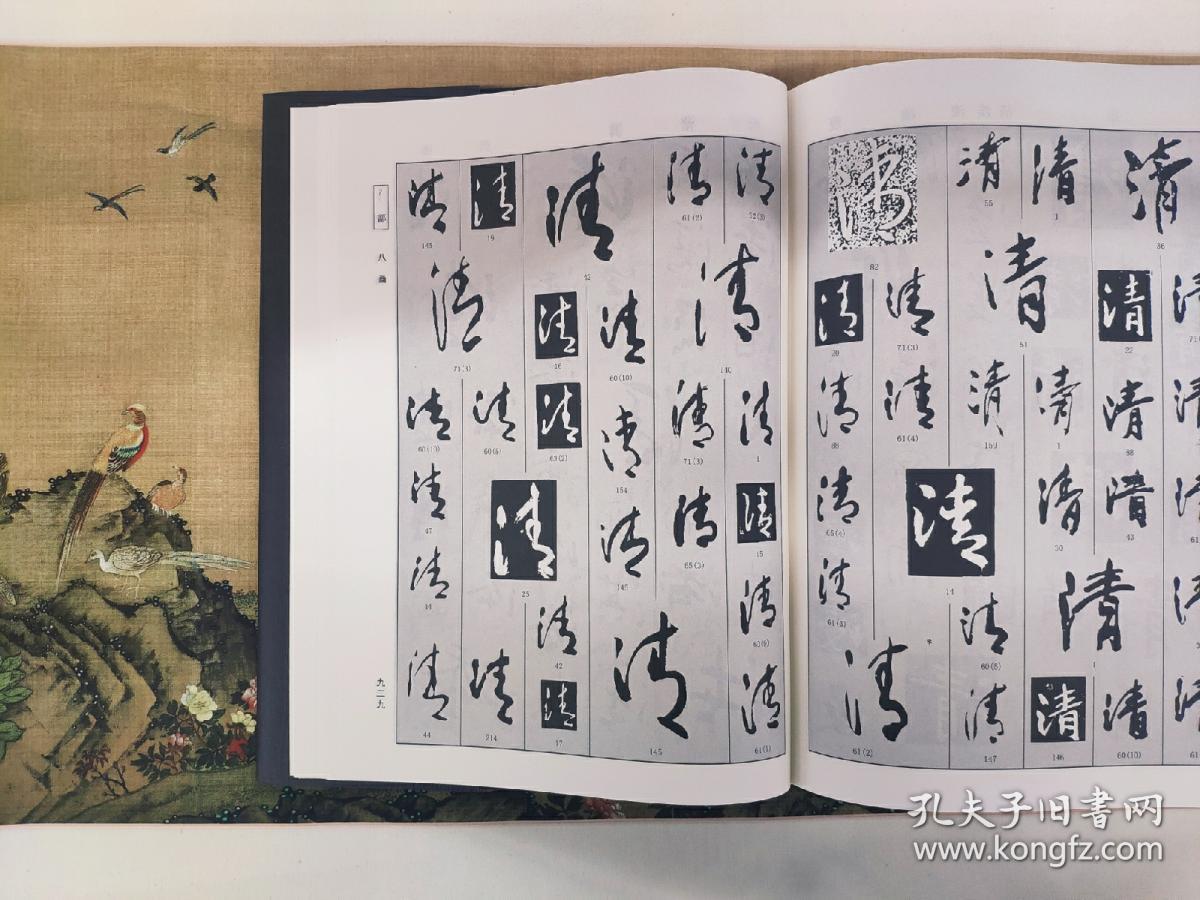 清
清 22
清
清 43
清 60(10)
清 1
清 51
清 1
清 30
清 1
清 146
清 55
清 159
清 14
宋
清 60(5)
清 147
清 82
清 71(3)
清 61(4)
清 20
清 68
清 65(4)
清 61(3)
清 61(2)
清 52(3)
清 140
清 1
清 15
清 60(9)
清 61(1)
清 61(2)
清 71(3)
清 65(3)
清 145
清 42
清 60(10)
清 154
清 146
清 19
清 16
清 63(2)
清 60(5)
清 25
清 42
清 17
清 214
清 145
清 71(3)
清 60(10)
清 47
清 44
清 44
氵部
八畫
九二九
孔夫子旧书网
www.kongfz.com